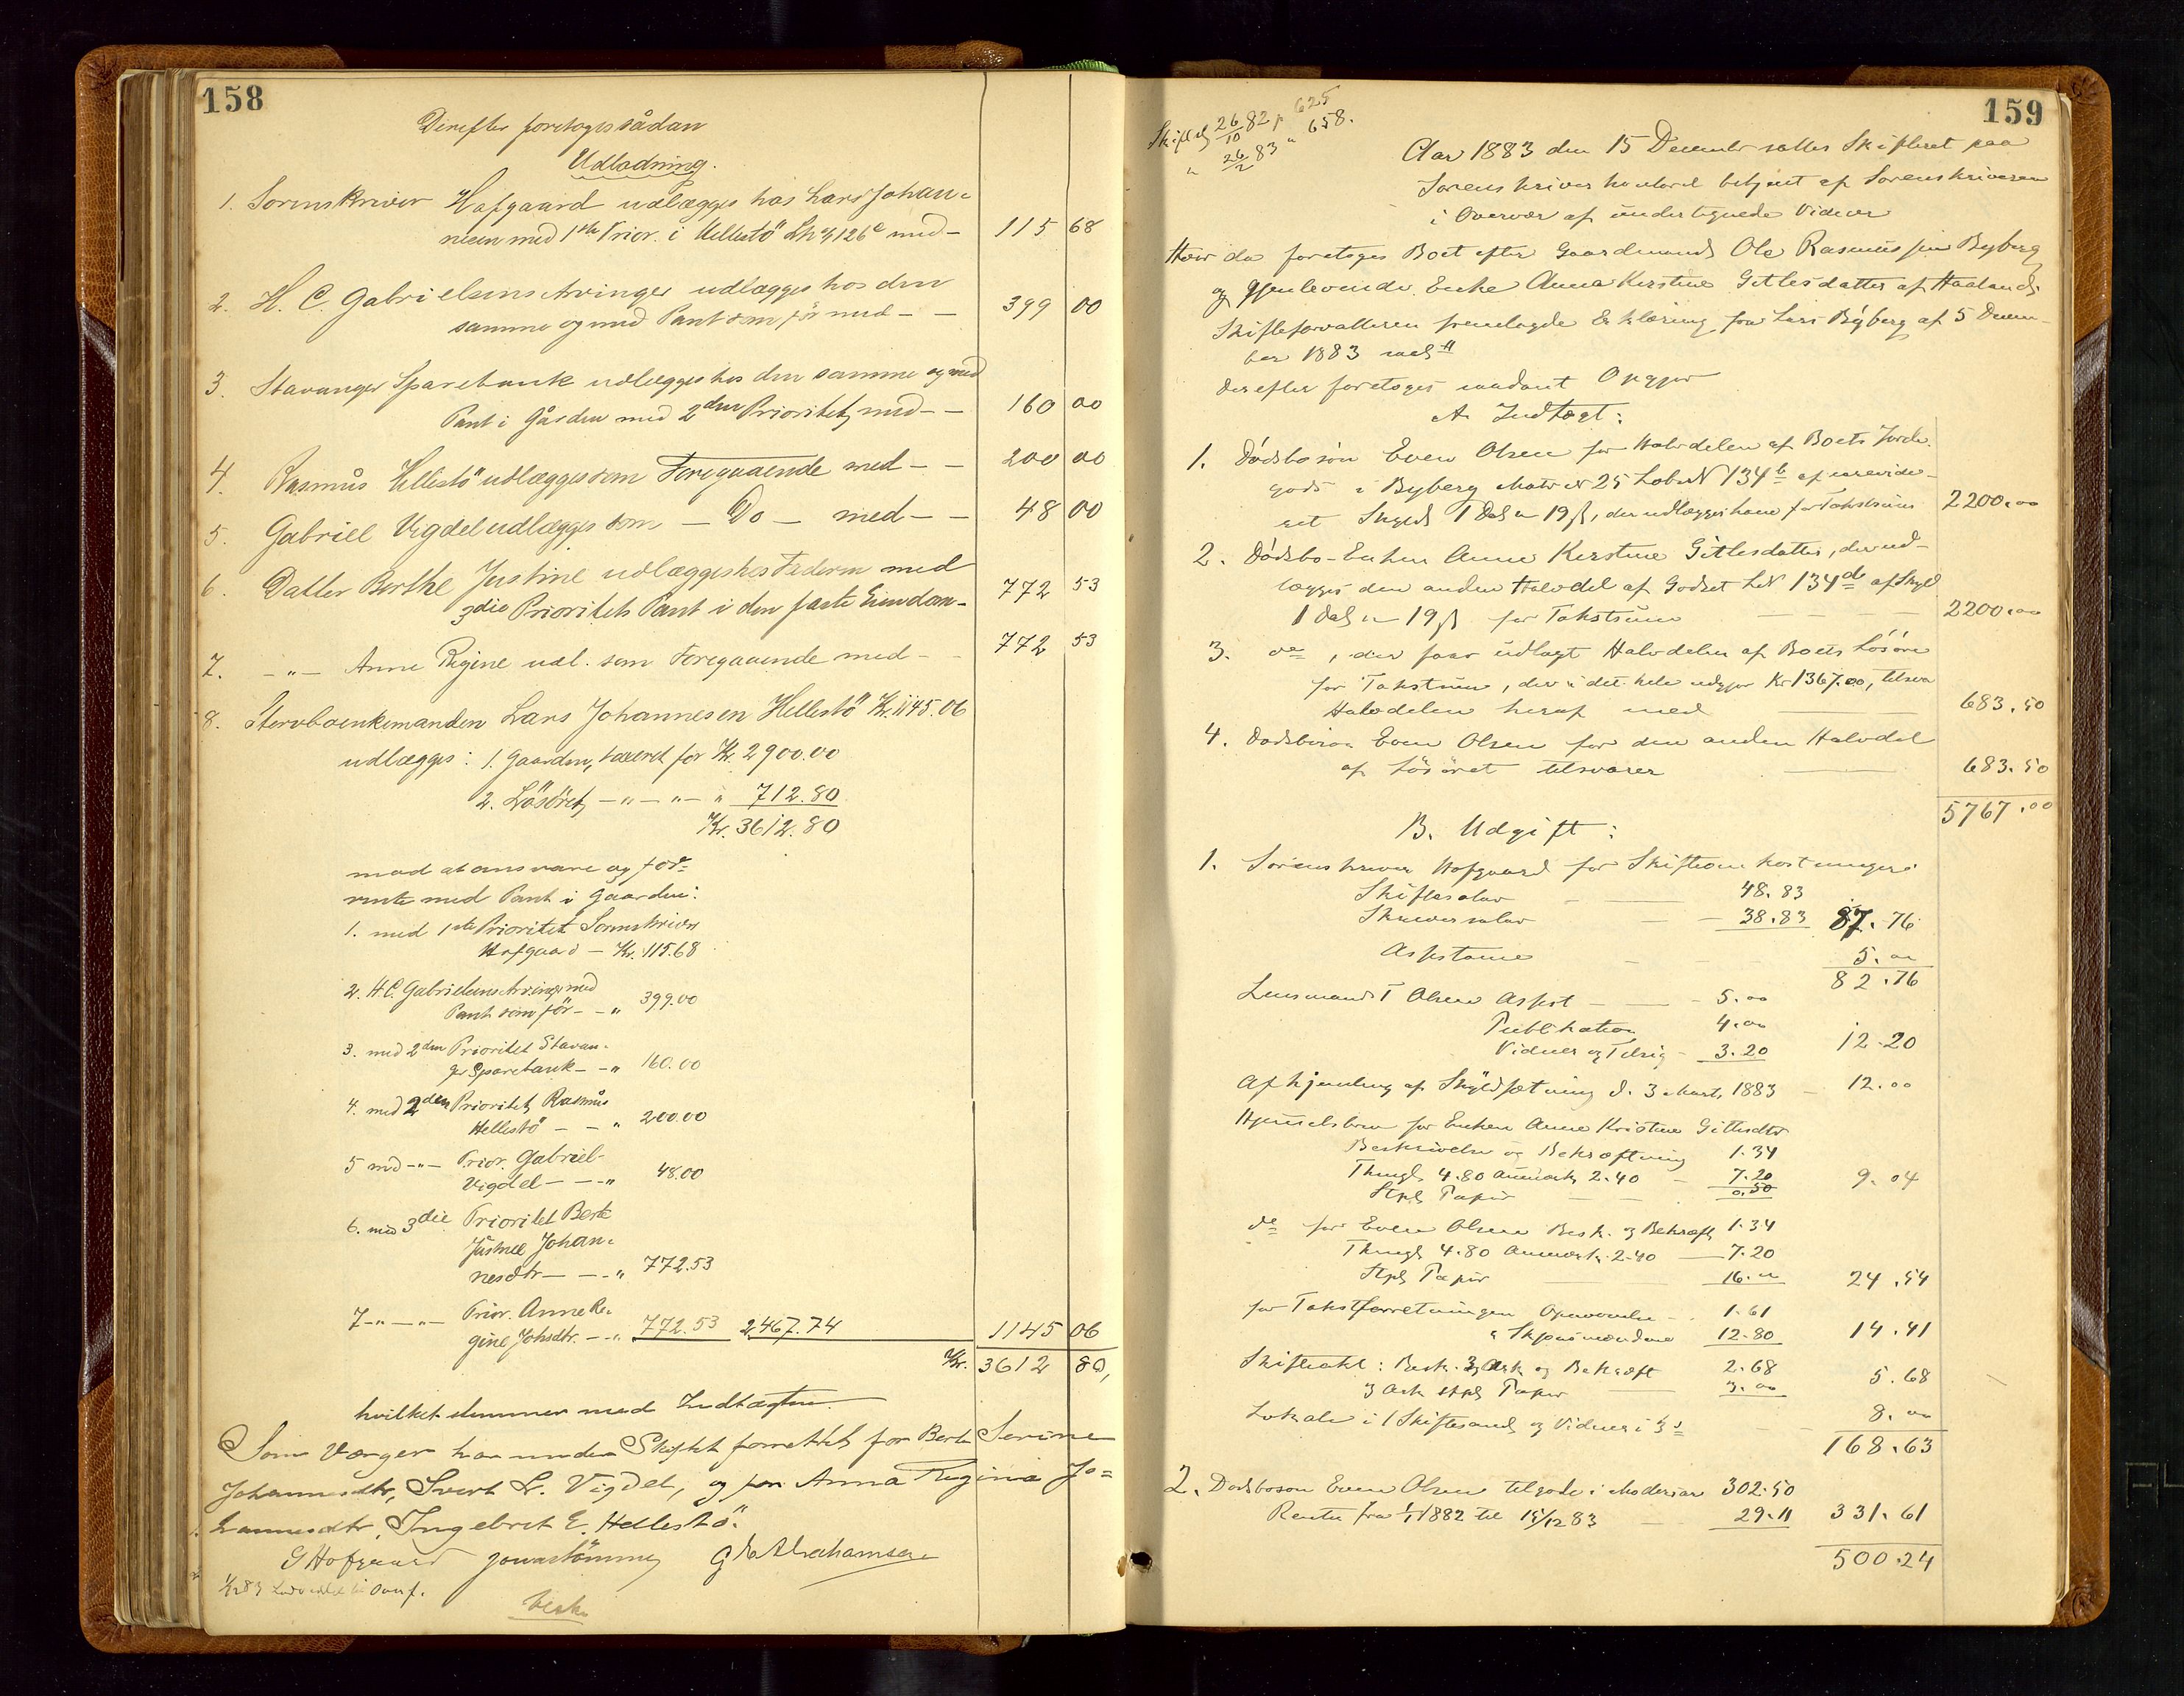 158
Derefter foretoges sådan
Udlodning.
1. Sorenskriver Hofgaard udlægges hos Lars Johan-
nesen med 1ste Prior. i Hellestö LNr 126c med — 115 68
2. H. C. Gabrielsens Arvinger udlægges hos den
samme og med Pant som för med — — 399 00
3. Stavanger Sparebank udlægges hos den samme og med
Pant i Gården med 2den Prioritet, med — — 160 00
4. Rasmus Hellestö udlægges som Foregaaende med — — 200 00
5. Gabriel Vigdel udlægges som — Do — med — — 48 00
6. Datter Berthe Justine udlægges hos Faderen med
3die Prioritets Pant i den faste Eiendom — 772 53
7. — " — Anne Regine udl. som Foregaaende med — — 772 53
8. Stervboenkemanden Lars Johannesen Hellestö Kr. 1145.06
udlægges: 1. Gaarden, taxeret for Kr. 2900.00
2. Lösöret, — " — " — " 712.80
Kr. 3612.80
mod at ansvare og for-
rente med Pant i Gaarden:
1. med 1ste Prioritet Sorenskriver
Hofgaard — Kr. 115.68
2. H.C. Gabrielsens Arvinger med
Pant som för — — " 399.00
3. med 2den Prioritet Stavan-
ger Sparebank — — " 160.00
4. med 2den Prioritet, Rasmus
Hellestö — — " 200.00
5 med — " — Prior. Gabriel
Vigdel — — — " 48.00
6. med 3die Prioritet Berte
Justine Johan-
nesdtr — — — " 772.53
7 — " — — " — Prior. Anne Re-
gine Johsdtr. — — " 772.53 2467.74 1145 06
Kr. 3612 80,
hvilket stemmer med Indtægten.
Som Værger har under Skiftet forrettet for Berte Serine
Johannesdtr, Sivert L. Vigdel, og for Anna Regina Jo=
hannesdtr, Ingebret E. Hellestö.
G Hofgaard Jonas Tömmer G A Abrahamsen
159
Skiftel 26/10 82 p 625
" 26/2 83 " 658.
Aar 1883 den 15 December sattes Skifteret paa
Sorenskriverkontoret betjent af Sorenskriveren
i Overvær af undertegnede Vidner
Hvor da foretoges Boet efter Gaardmand Ole Rasmussen Byberg
og Gjenlevende Enke Anna Kirstine Gitlesdatter af Haaland.
Skifteforvalteren fremlagde Erklæring fra Lars Byberg af 5 Decem-
ber 1883
Derefter foretoges saadant Opgjør
A. Indtægt:
1. Dødsbosøn Even Olsen for Halvdelen af Boets Jorde-
gods i Byberg Matr N 25 LøbeN 134b af urevide-
ret Skyld 1 Dal 19 ß, der udlægges ham for Takstsum 2200.00
2. Dødsbo-Enken Anne Kirstine Gitlesdatter, der ud-
lægges den anden Halvdel af Godset LN 134d af Skyld
1 Dal 19 ß for Takstsum — — 2200.00
3. do, der faar udlagt Halvdelen af Boets Løsøre
for Takstsum, der i det hele udgjør Kr 1367.00, tilsva
Halvdelen heraf med — 683.50
4. Dødsbosøn Even Olsen for den anden Halvdel
af Løsøret tilsvarer — 683.50
5767.00
B. Udgift:
1. Sorenskriver Hofgaard for Skifteomkostninger:
Skiftesalær — — 48.83
Skriversalær — — 38.83 87.76
— — 5.00
82.76
Lensmand T Olsen — — 5.00
Publikation 4.00
Vidner og Tilsig — 3.20 12.20
Afhjemling af Skyldsætning d. 3 Marts 1883 — 12.00
Hjemmelsbrev for Enken Anne Kristine Gitlesdtr
Beskrivelse og Bekræftning 1.34
Thingl 4.80 Anmærk 2.40 — 7.20
Stpl Papir — — 0.50 9.04
do for Even Olsen Besk. og Bekræft 1.34
Thingl 4.80 Anmærk. 2.40 — 7.20
Stpl Papir — 16.00 24.54
for Takstforretningen Opnævnelse — 1.61
" Skjønsmændene 12.80 14.41
Skifteakt: Besk. 3 Ark og Bekræft 2.68
3 Ark stpl Papir — 3.00 5.68
Lokale i 1 Skiftesaml og Vidner i 3 do — 8.00
168.63
2. Dødsbosøn Even Olsen tilgode i Moderarv 302.50
Renter fra 1/1 1882 til 15/12 83 — 29.11 331.61
500.24